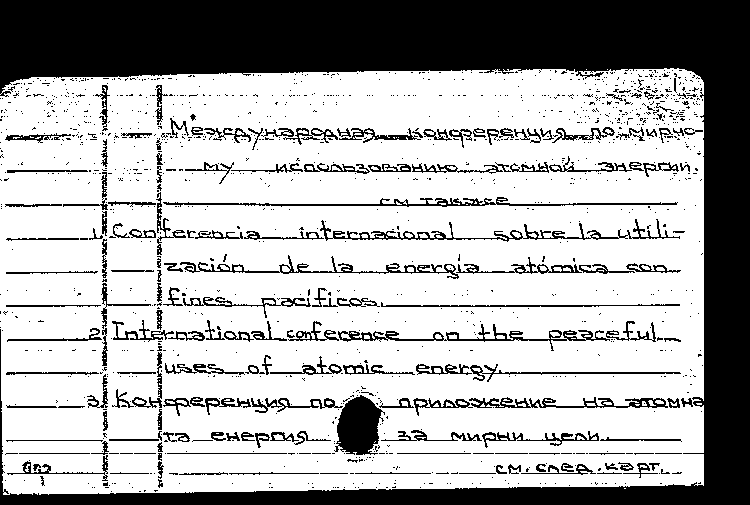 Международная конференция по мирно-
му использованию атомной энергии.
см также
1. Conferencia internacional sobre la utili-
zación de la energía atómica con
fines pacíficos.
2. International conference on the peaceful
uses of atomic energy.
3. Конференция по приложение на атомна
та енергия за мирни цели.
см. след. карт.